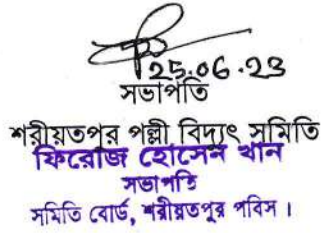 25.06.23
সভাপতি
শরীয়তপুর পল্লী বিদ্যুৎ সমিতি
ফিরোজ হোসেন খান
সভাপতি
সমিতি বোর্ড, শরীয়তপুর পবিস।